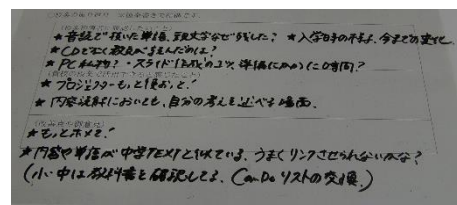 ★音読で抜いた単語、頭文字なぜ残した？ ★入学時の様子、今までの変化
★CDでなく教員が読んだのは？
★PC私物？・スライド作成のコツ、準備にかかった時間？
★プロジェクターもっと後おして！
★内容読解においても、自分の考えを述べる場面。
★もっとホメて！
★内容や単語が中学TEXTと似ている。うまくリンクさせられないかな？
(小・中は教科書を確認してる、Can Do リストの交換。)